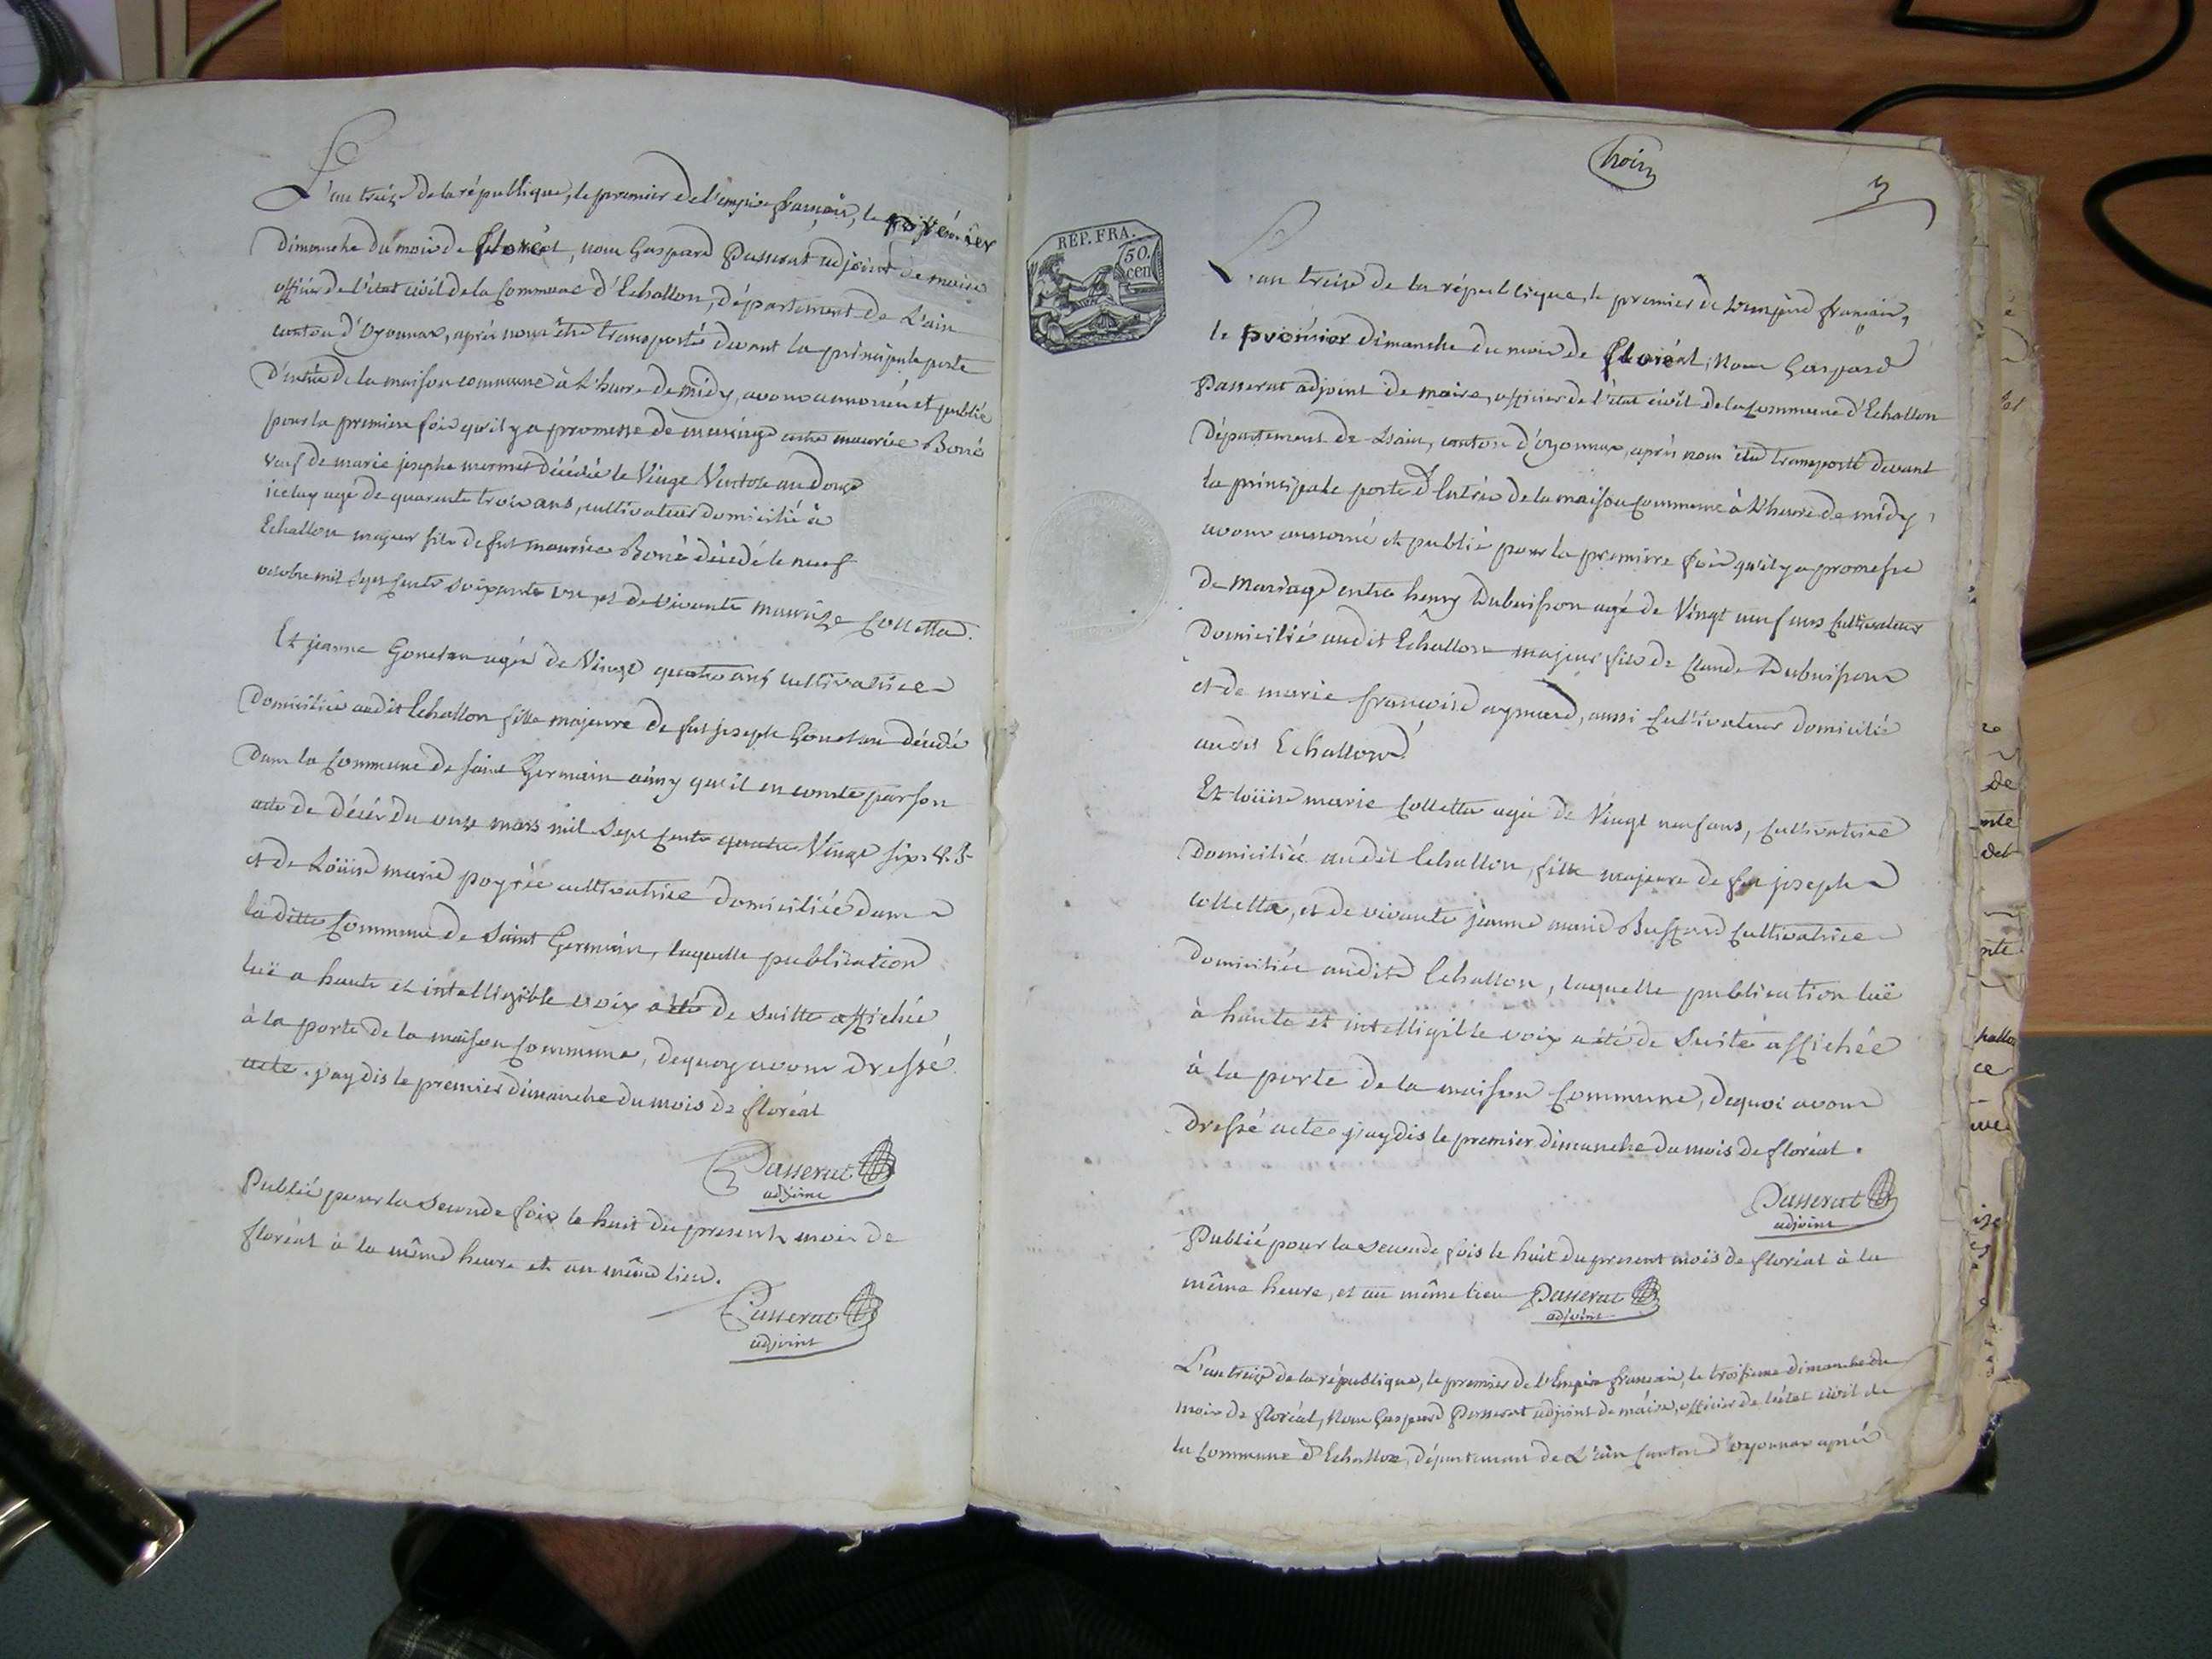 L'an treize de la république, le premier de l'empire français, le premier
Dimanche du mois de floréal, nous Gaspard Passerat adjoint de maire
officier de l'état civil de la Commune d'Echallon, département de L'ain
canton d'Oyonnax, après nous être transporté devant la principale porte
D'entrée de la maison commune à L'heure de midy, avons annoncé et publié
pour la premiere fois qu'il y a promesse de mariage entre maurice Boné
veuf de marie josephe mermet décédée le Vingt Ventose an douze
iceluy agé de quarente trois ans, cultivateur domicilié à
Echallon majeur fils de fut maurice Boné décédé le neuf
octobre mil sept cents soixante un, et de vivante maurize Colletta.
Et jeanne Gonetan agée de Vingt quatre ans cultivatrice
Domiciliée audit Echallon fille majeure de fut joseph Gonetan décédé
Dans la Commune de saint Germain ainsy qu'il en conste par son
acte de décès du onze mars mil sept cents quatre Vingt six
et de Loüise marie poyrée cultivatrice Domiciliée dans
la ditte Commune de Saint Germain, laquelle publication
luë a haute et intelligible voix a été de suitte affichée
à la porte de la maison Commune, dequoy avons dressé
acte. j'ay dis le premier dimanche du mois de floréal
Passerat
adjoint
Publié pour la seconde fois le huit du present mois de
floréal à la même heure et au même lieu.
Passerat
adjoint
3
REP. FRA.
50.
cen
L'an treize de la république, le premier de L'empire français,
le premier Dimanche du mois de floréal, Nous Gaspard
Passerat adjoint de maire, officier de l'état civil de la Commune d'Echallon
Département de L'ain, canton d'Oyonnax, après nous être transporté devant
la principale porte d'Entrée de la maison Commune à L'heure de midy,
avons annoncé et publié pour la premiere fois qu'il y a promesse
de Mariage entre henry Dubuisson agé de Vingt neuf ans Cultivateur
Domicilié audit Echallon majeur fils de Claude Dubuisson
et de marie françoise aymard, aussi Cultivateurs domicilié
audit Echallon
Et loüise marie Colletta agée de Vingt neuf ans, Cultivatrice
Domiciliée audit Echallon, fille majeure de fut joseph
Colletta, et de vivante jeanne marie Cultivatrice
Domiciliée audit Echallon, laquelle publication luë
à haute et intelligible voix a été de suite affichée
à la porte de la maison Commune, dequoi avons
Dressé acte j'ay dis le premier dimanche du mois de floréal.
Passerat
adjoint
Publié pour la seconde fois le huit du present mois de floréal à la
même heure, et au même lieu Passerat
adjoint
L'an treize de la république, le premier de l'Empire français, le troisieme dimanche du
mois de floréal, Nous Gaspard Passerat adjoint de maire, officier de l'état civil de
la Commune d'Echallon, département de L'ain Canton d'oyonnax après